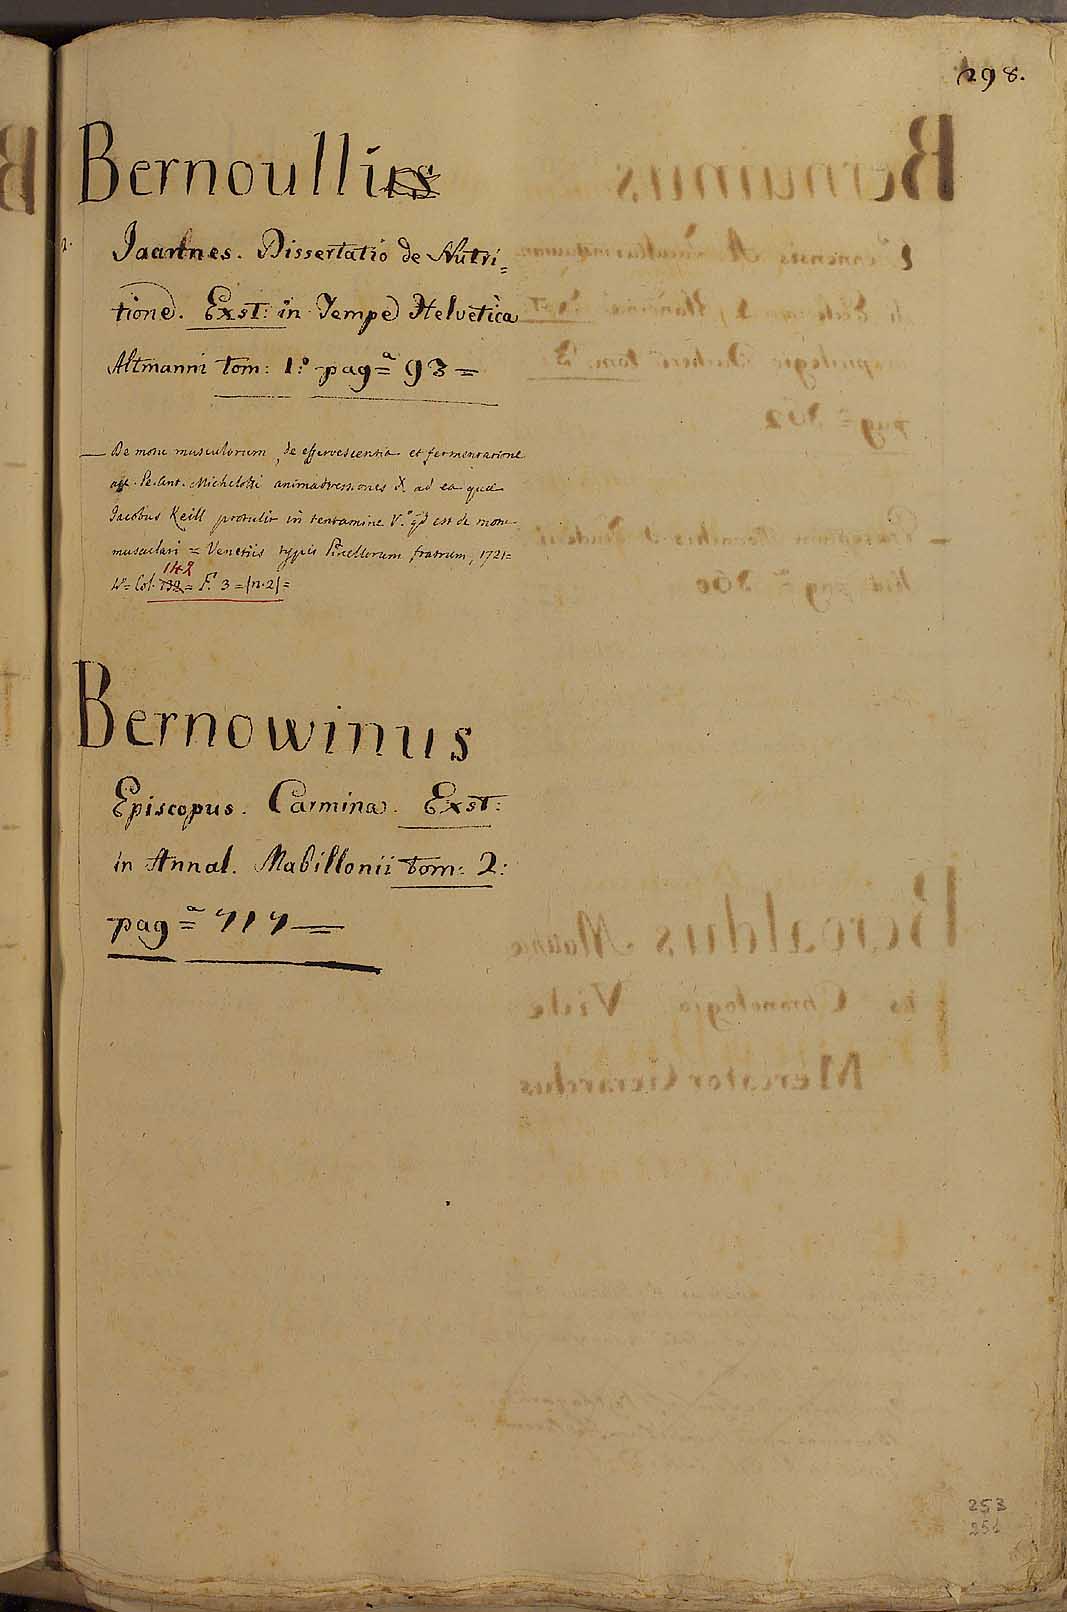 298.
Bernoullius
2. Joannes. Dissertatio de Nutri=
tione. Exst: in Tempe Helvetica
Altmanni tom: 1.º pag=ª 93 =
— De motu musculorum, de effervescentia et fermentatione
Pe. Ant. Michelotti animadversiones X ad ea quae
Jacobus Keill protulit in tentamine V.º qd est de motu
musculari = Venetiis typis Pinellorum fratrum, 1721=
4º= Col. 132 142 = F. 3 = (n. 2) =
Bernowinus
Episcopus. Carmina. Exst:
in Annal. Mabillonii tom: 2:
pag=ª 717 =
253